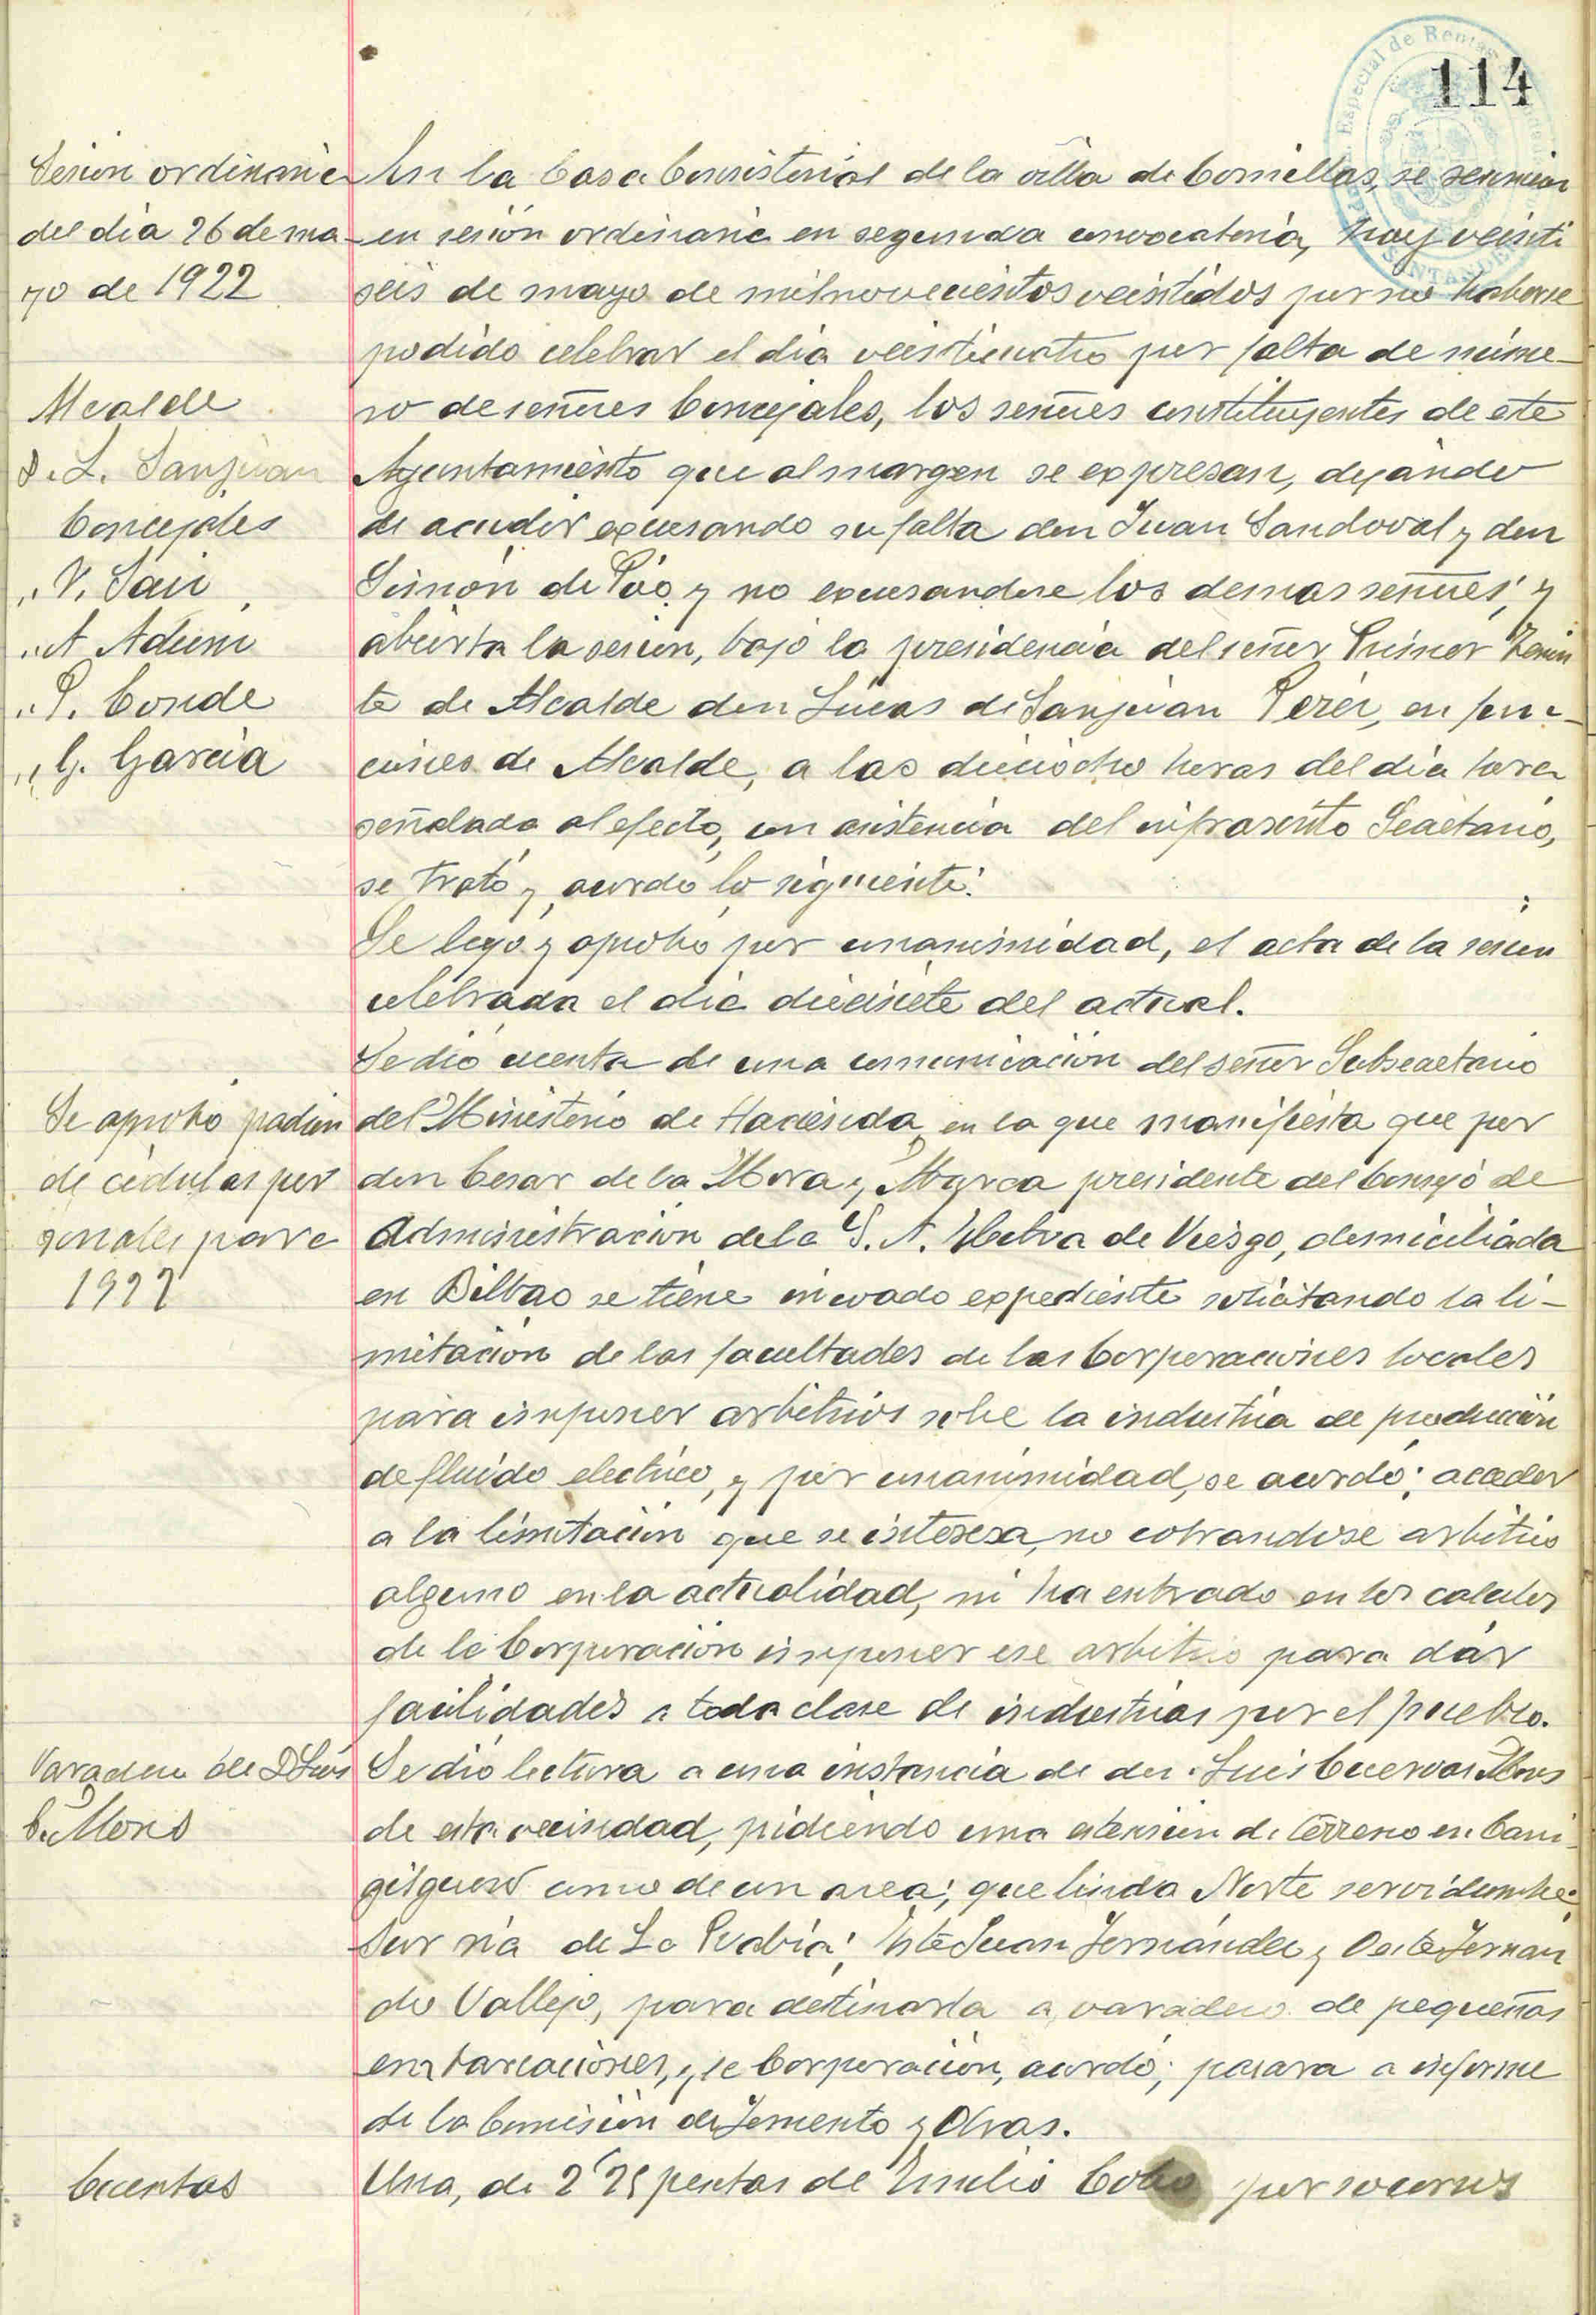 114
Sesion ordinaria
del dia 26 de ma
yo de 1922
Alcalde
D. L. Sanjuan
Concejales
" V. Saiz
" A Adum
" P. Conde
" G. Garcia
En la Casa Consistorial de la villa de Comillas, se reunieron
en sesión ordinaria en segunda convocatoria, hoy veinti
seis de mayo de mil novecientos veintidos por no haberse
podido celebrar el dia veinticuatro por falta de núme-
ro de señores Concejales, los señores constituyentes de este
Ayuntamiento que al margen se expresan, dejando
de acudir excusando su falta don Juan Sandoval y don
Simón de Póo y no excusandose los demas señores; y
abierta la sesion, bajo la presidencia del señor Primer Tenien
te de Alcalde don Lucas de Sanjuan Perez, en fun-
ciones de Alcalde, a las dieciocho horas del dia hora
señalada al efecto, con asistencia del infrascrito Secretario,
se trató y acordó lo siguiente:
Se leyó y aprobó por unanimidad, el acta de la sesion
celebrada el dia diecisiete del actual.
Se dió cuenta de una comunicación del señor Subsecretario
Se aprobó padron
de cédulas per
sonales para
1922
del Ministerio de Hacienda en la que manifiesta que por
don Cesar de la Mora y Abarca presidente del Consejo de
Administracion de la S. A. Electra de Viesgo, domiciliada
en Bilbao se tiene incoado expediente solicitando la li-
mitación de las facultades de las Corporaciones locales
para imponer arbitrios sobre la industria de producción
de fluido electrico, y por unanimidad, se acordó; acceder
a la limitación que se interesa, no cobrandose arbitrio
alguno en la actualidad, ni ha entrado en los calculos
de la Corporación imponer ese arbitrio para dar
facilidades a toda clase de industrias por el pueblo.
Varadero de D Luis
C. Mons
Se dió lectura a una instancia de don Luis Cuervas Mons
de esta vecindad, pidiendo una extension de terreno en
como de un area; que linda Norte servidumbre;
Sur ria de La Rabia; Este Juan Fernández y Oeste Fernan
do Vallejo, para destinarla a varadero de pequeñas
embarcaciones, y la Corporación, acordó; pasara a informe
de la Comisión de Fomento y Obras.
Cuentas
Una, de 2'25 pesetas de Emilio Cobo por socorros